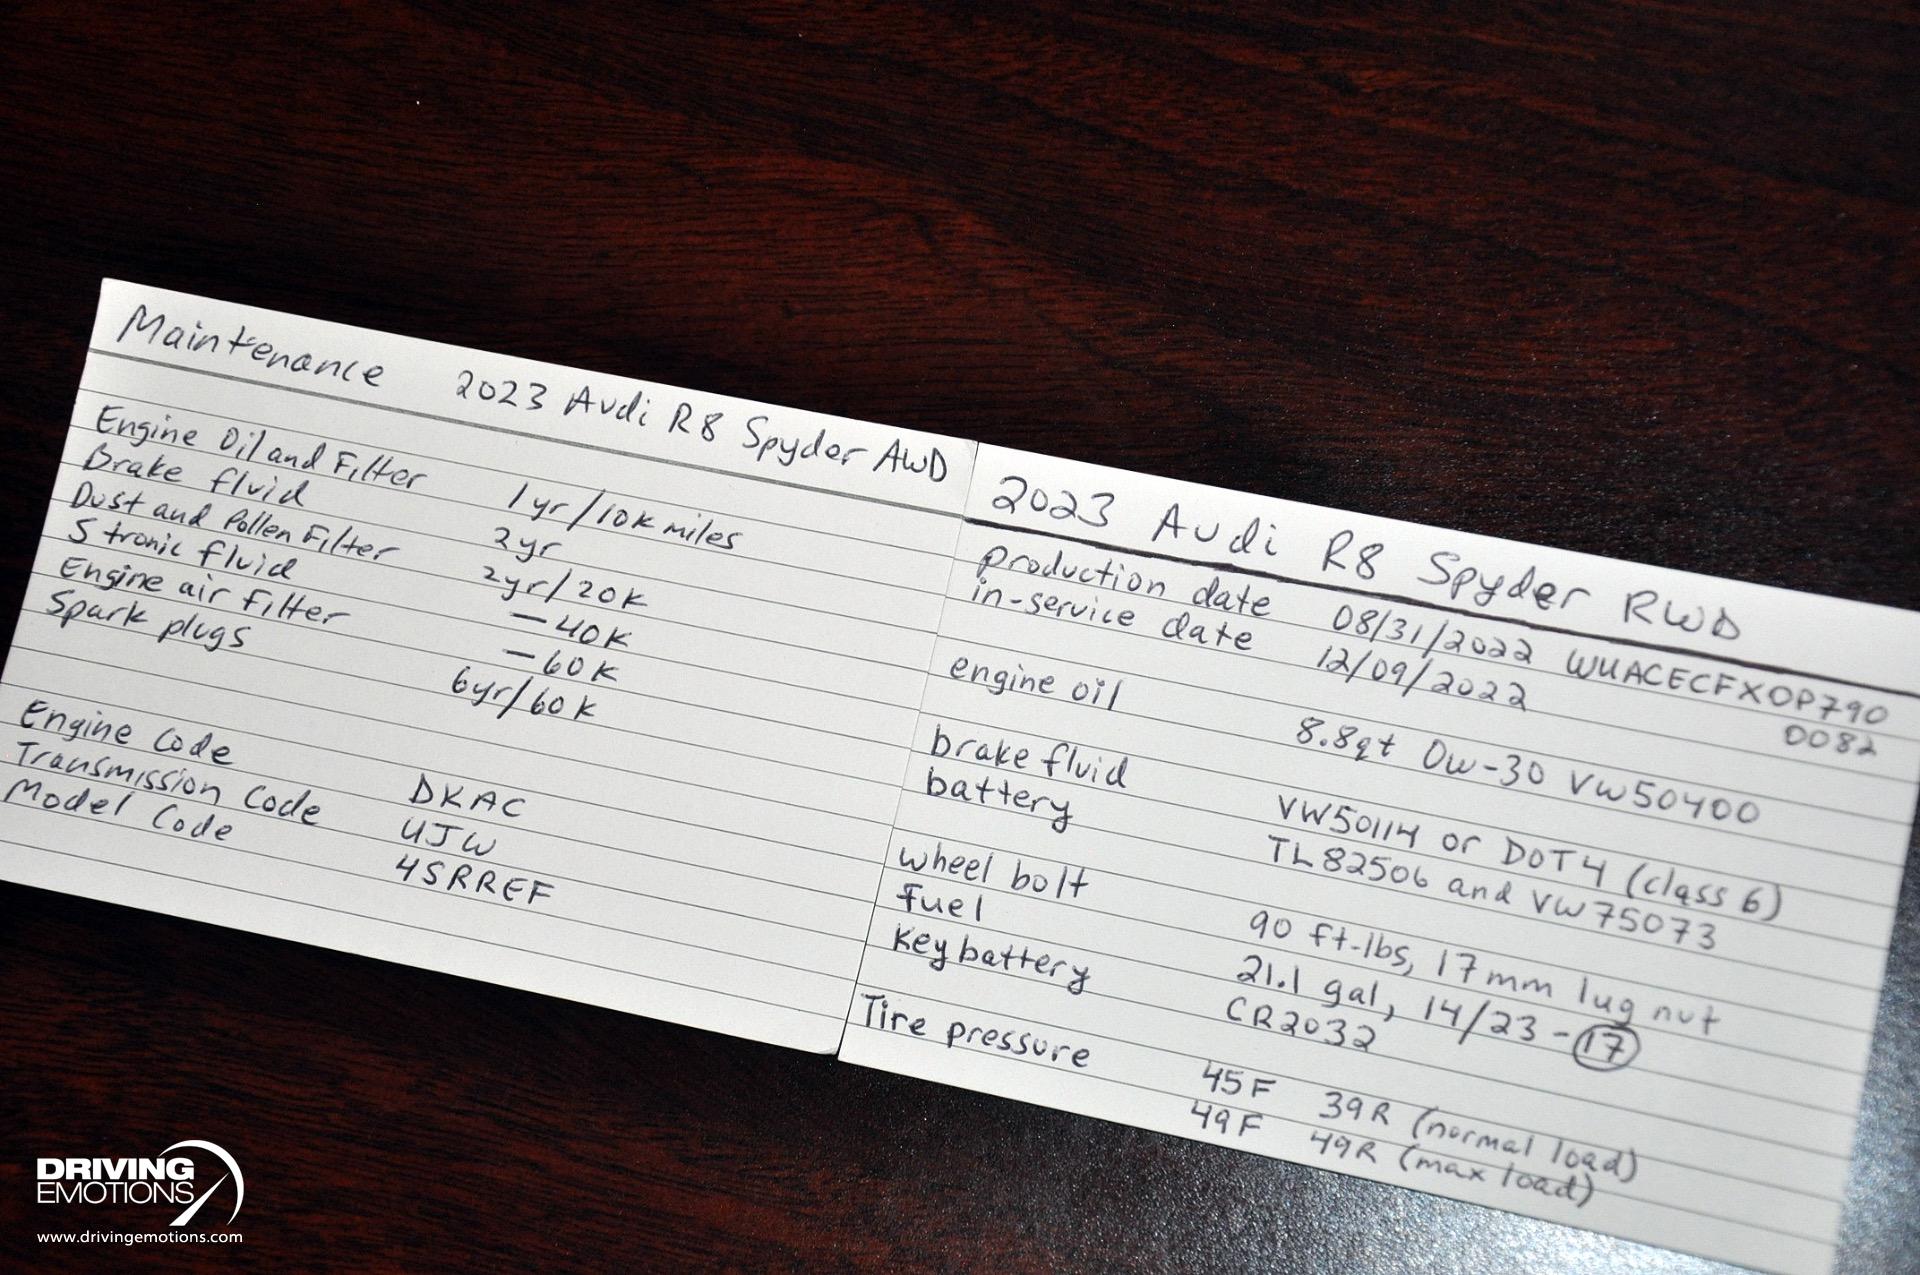 Maintenance 2023 Audi R8 Spyder AWD
Engine Oil and Filter 1yr/10K miles
Brake fluid 2yr
Dust and Pollen Filter 2yr/20K
S tronic fluid —40K
Engine air Filter —60K
Spark plugs 6yr/60K
Engine Code DKAC
Transmission Code UJW
Model Code 4SRREF
2023 Audi R8 Spyder RWD
production date 08/31/2022 WUACECFX0P790
in-service date 12/09/2022 0082
engine oil 8.8qt 0w-30 VW50400
brake fluid VW50114 or DOT4 (class 6)
battery TL82506 and VW75073
wheel bolt 90 ft-lbs, 17mm lug nut
fuel 21.1 gal, 14/23-17
Key battery CR2032
Tire pressure 45F 39R (normal load)
49F 49R (max load)
DRIVING
EMOTIONS
www.drivingemotions.com